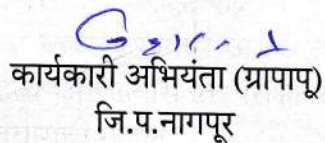 कार्यकारी अभियंता (ग्रापापू)
जि.प.नागपूर